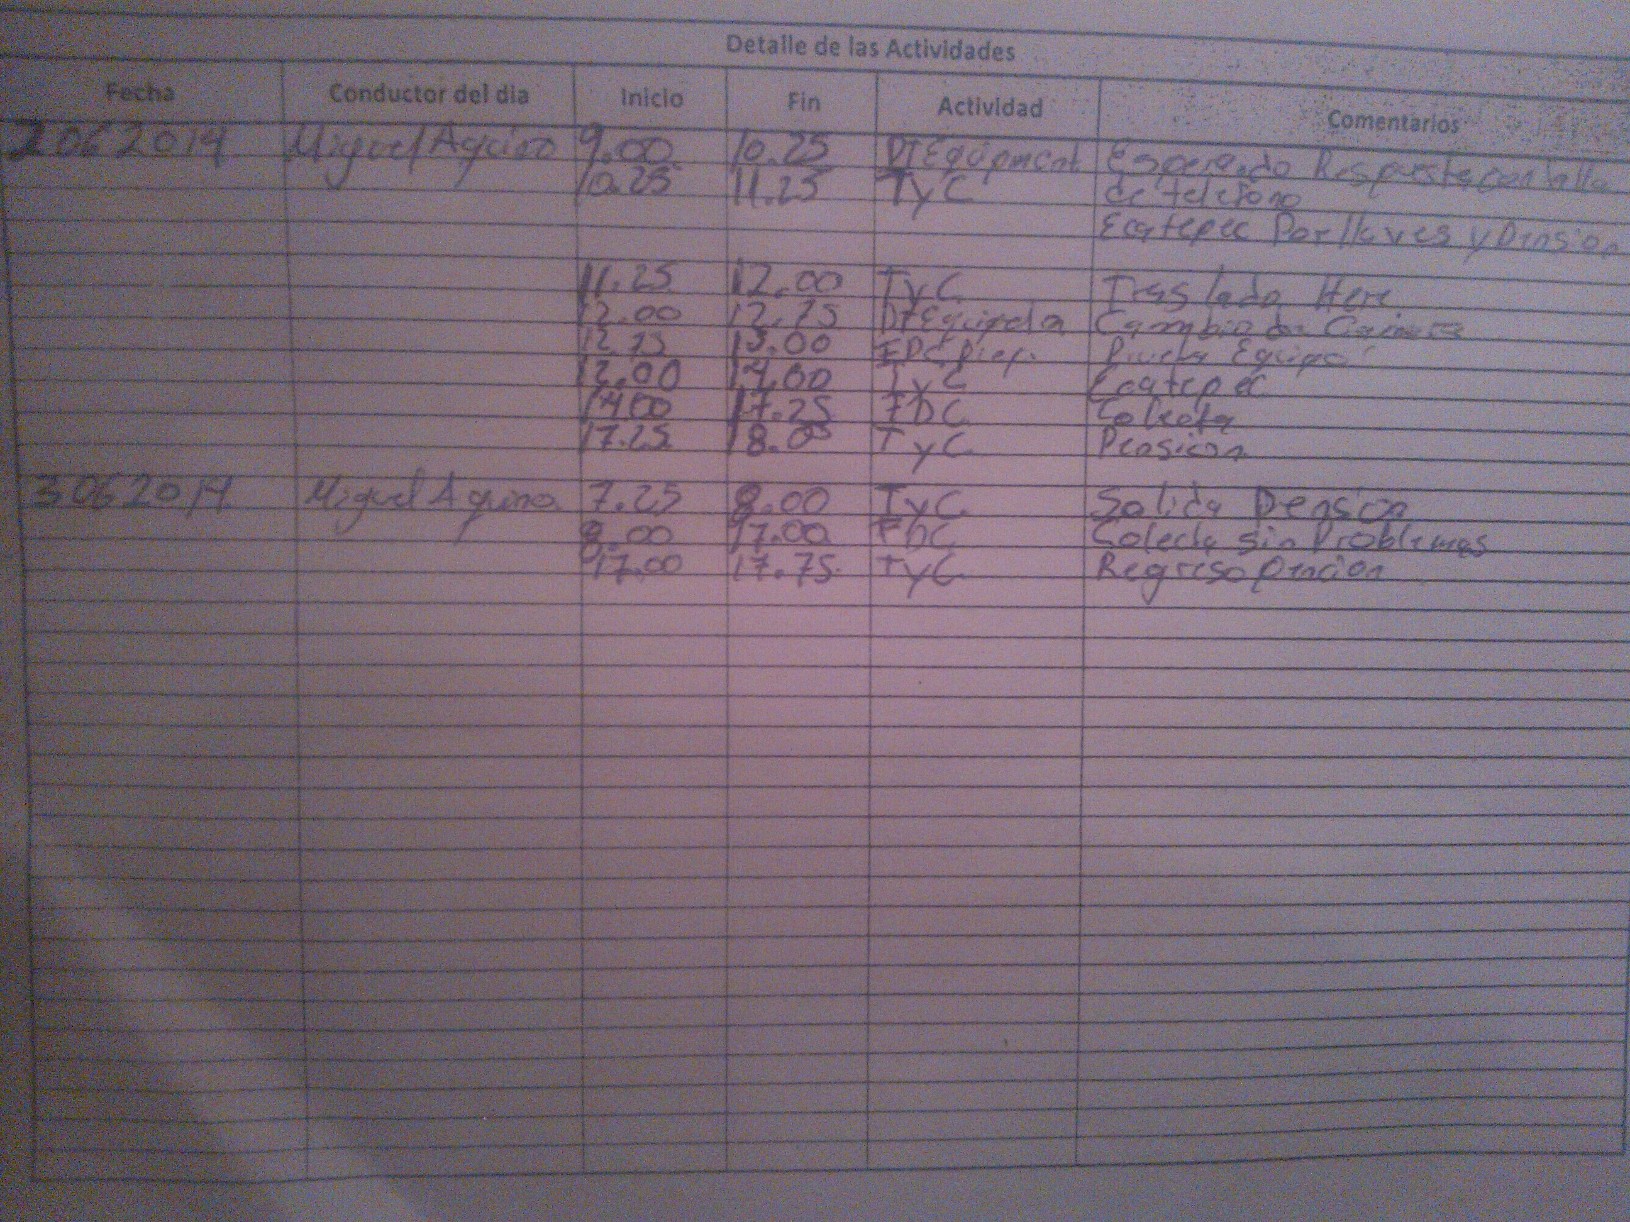 Detalle de las Actividades
Fecha Conductor del dia Inicio Fin Actividad Comentarios
2 06 2014 Miguel Aquino 9.00 10.25 DTEquipment Esperando Respuesta por falla
10.25 11.25 TyC de telefono
Ecatepec Por llaves y Pension
11.25 12.00 TyC Traslado Here
12.00 12.75 Cambio de Camara
12.75 13.00 Equipo
12.00 14.00 TyC Ecatepec
1400 17.25 FDC Colecta
17.25 18.00 TyC Pension
3 06 2014 Miguel Aquino 7.25 8.00 TyC Salida Pension
8.00 17.00 FDC Colecta sin Problemas
17.00 17.75 TyC Regreso Pencion